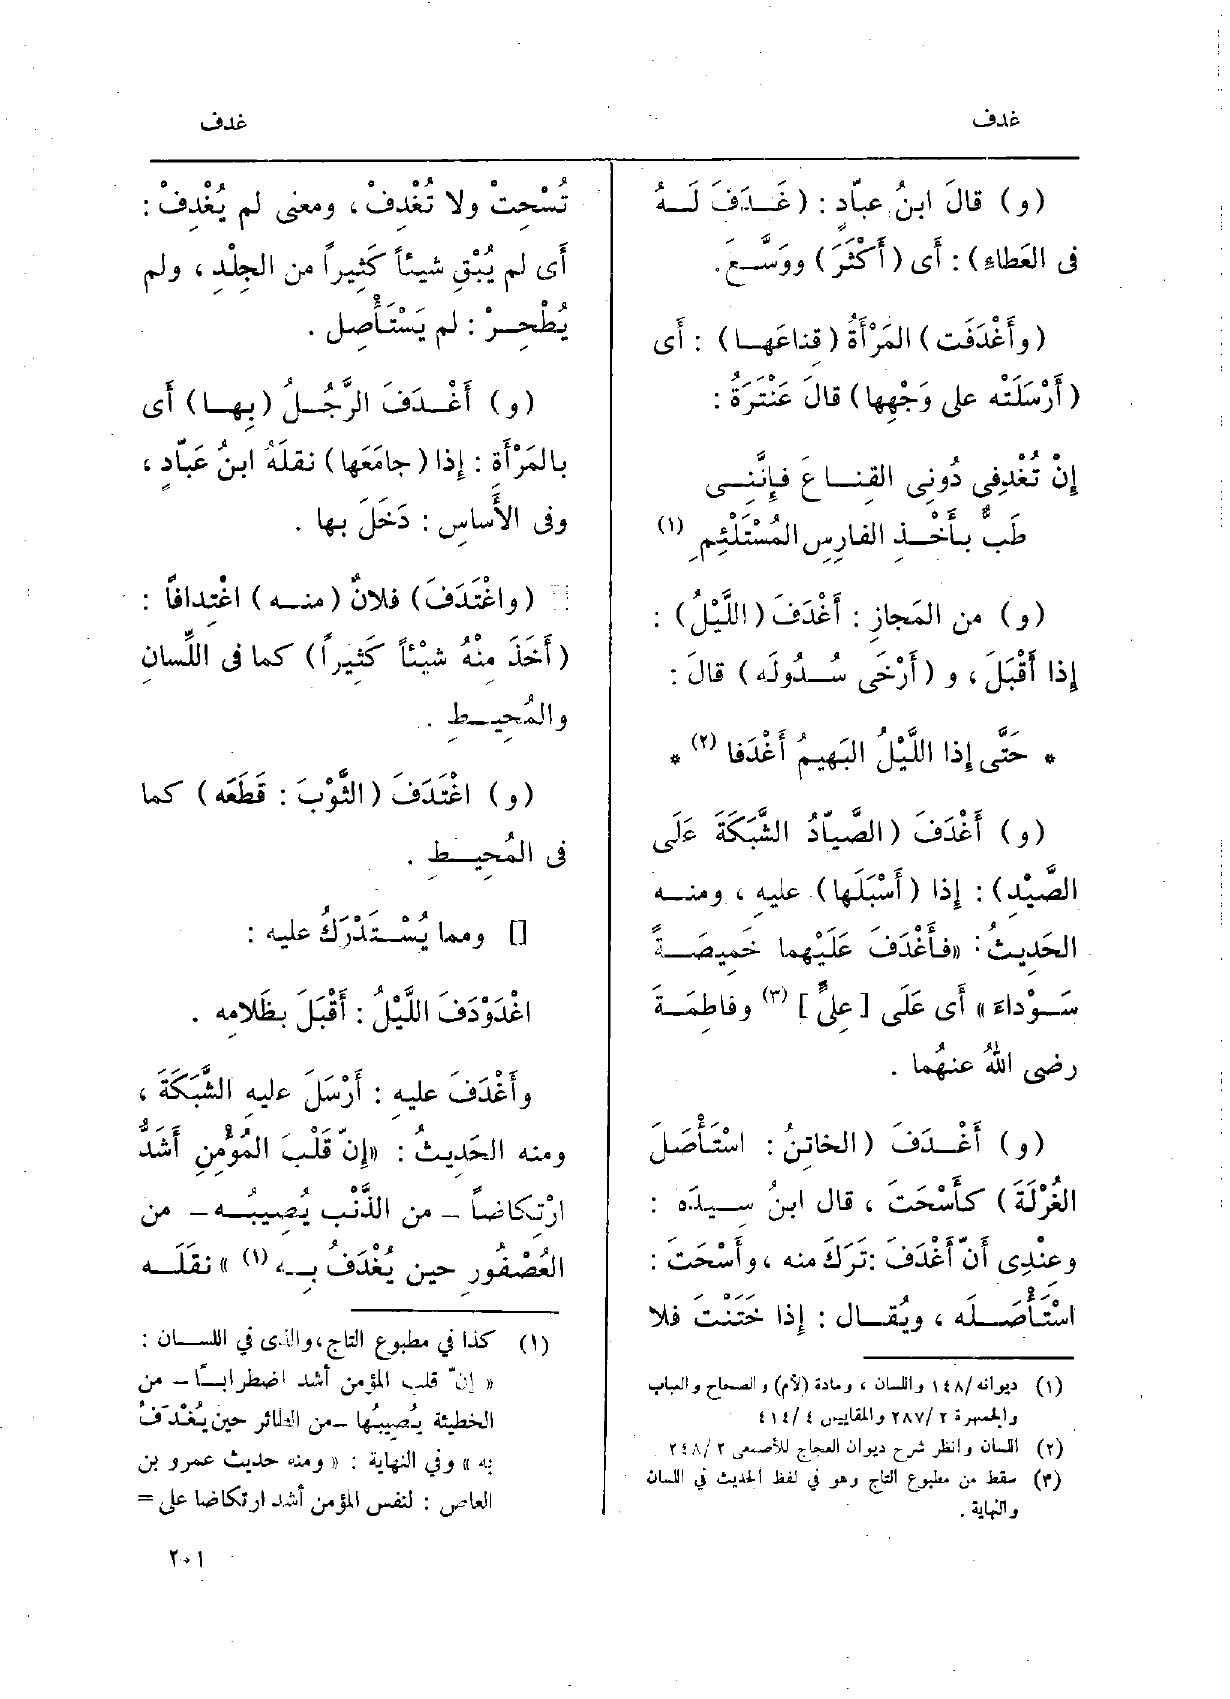 غدف
غدف
(و) قالَ ابنُ عبّادٍ : (غَدَفَ لَهُ
فى العَطاءِ) : أى (أَكْثَرَ) ووَسَّعَ.
(وأَغْدَفَت) المَرْأَةُ (قِناعَها) : أَى
(أَرْسَلَتْه على وَجْهِها) قالَ عَنْتَرَةُ :
إنْ تُغْدِفِى دُونِى القِناعَ فإِنَّنِى
طَبٌّ بأَخْذِ الفارِسِ المُسْتَلْئِمِ (١)
(و) من المَجازِ : أَغْدَفَ (اللَّيْلُ) :
إذا أَقْبَلَ ، و (أَرْخَى سُدُولَه) قالَ :
* حَتَّى إذا اللَّيْلُ البَهِيمُ أَغْدَفا (٢) *
(و) أَغْدَفَ (الصَّيّادُ الشَّبَكَةَ عَلَى
الصَّيْدِ) : إذا (أَسْبَلَها) عليهِ ، ومنه
الحَدِيثُ : «فأَغْدَفَ عَلَيْهِما خَمِيصَةً
سَوْداءَ» أى عَلَى [عِلىٍّ] (٣) وفاطِمَةَ
رضى اللهُ عنهُما .
(و) أَغْدَفَ (الخاتِنُ : اسْتَأْصَلَ
الغُرْلَةَ) كأَسْحَتَ ، قال ابنُ سِيدَه :
وعِنْدِى أَنّ أَغْدَفَ : تَرَكَ منه ، وأَسْحَتَ :
اسْتَأْصَلَه ، ويُقال : إذا خَتَنْتَ فلا
(١) ديوانه /١٤٨ واللسان ، ومادة (لأم) والصحاح والعباب
والجمهرة ٢ /٢٨٧ والمقاييس ٤ /٤١٤
(٢) اللسان وانظر شرح ديوان العجاج للأصمعى ٢ /٢٤٨
(٣) سقط من مطبوع التاج وهو في لفظ الحديث في اللسان
والنهاية .
تُسْحِتْ ولا تُغْدِفْ ، ومعنى لم يُغْدِفْ :
أى لم يُبْقِ شيئاً كَثِيراً من الجِلْدِ ، ولم
يُطْحِرْ : لم يَسْتَأْصِل .
(و) أَغْدَفَ الرَّجُلُ (بِها) أَى
بالمَرْأَةِ : إذا (جامَعَها) نقلَهُ ابنُ عَبّادٍ ،
وفى الأَساسِ : دَخَلَ بها .
(واغْتَدَفَ) فلانٌ (منه) اغْتِدافاً :
(أَخَذَ مِنْهُ شيْئاً كَثِيراً) كما فى اللِّسانِ
والمُحِيطِ .
(و) اغْتَدَفَ (الثَّوْبَ : قَطَعَه) كما
فى المُحِيطِ .
[] ومما يُسْتَدْرَكُ عليه :
اغْدَوْدَفَ اللَّيْلُ : أَقْبَلَ بظَلامِه .
وأَغْدَفَ عليهِ : أَرْسَلَ عليهِ الشَّبَكَةَ ،
ومنه الحَدِيثُ : «إنّ قَلْبَ المُؤْمِنِ أَشَدُّ
ارْتِكاضاً – من الذَّنْبِ يُصِيبُه – من
العُصْفُورِ حين يُغْدَفُ بِه (١) » نقَلَه
(١) كذا في مطبوع التاج ، والذى في اللسان :
« إنّ قلب المؤمن أشد اضطراباً – من
الخطيئة يُصيبُها – من الطائر حين يُغْدَفُ
به » وفي النهاية : « ومنه حديث عمرو بن
العاص : لنفس المؤمن أشد ارتكاضا على =
٢٠١